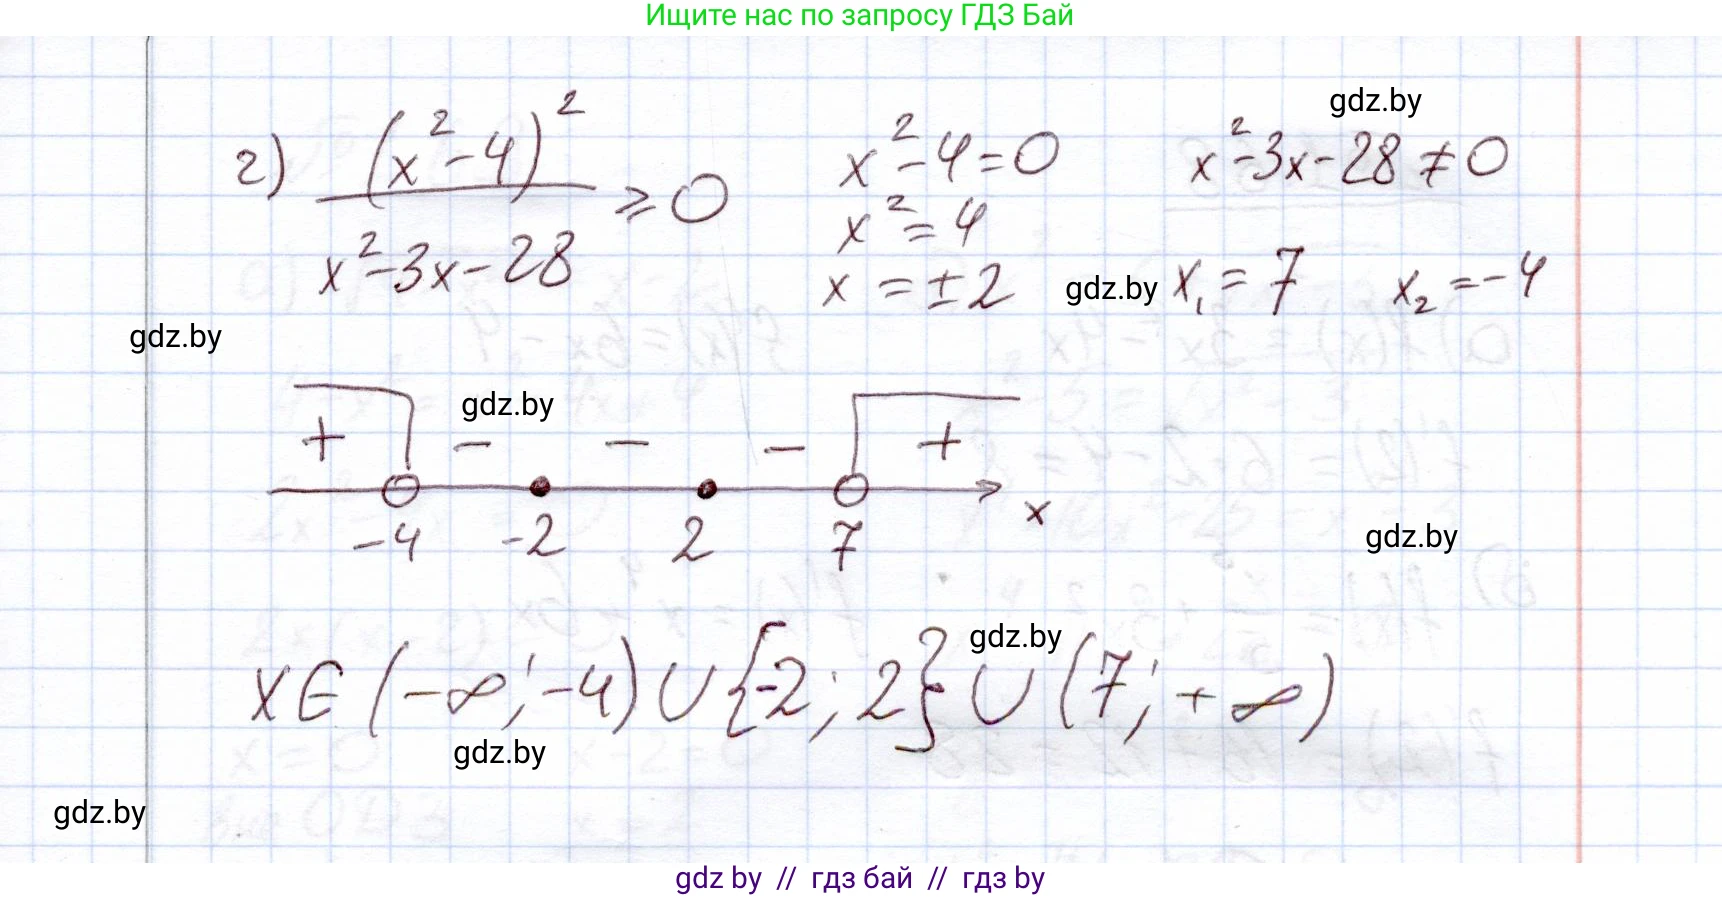 Ищите нас по запросу ГДЗ Бай
gdz.by
г) (x²-4)² / x²-3x-28 ≥ 0
x²-4=0
x²=4
x=±2
x²-3x-28≠0
x₁=7 x₂=-4
gdz.by
gdz.by
gdz.by
+ - - - +
-4 -2 2 7 x
gdz.by
gdz.by
x∈(-∞;-4)∪{-2;2}∪(7;+∞)
gdz.by
gdz.by
gdz by // гдз бай // гдз by